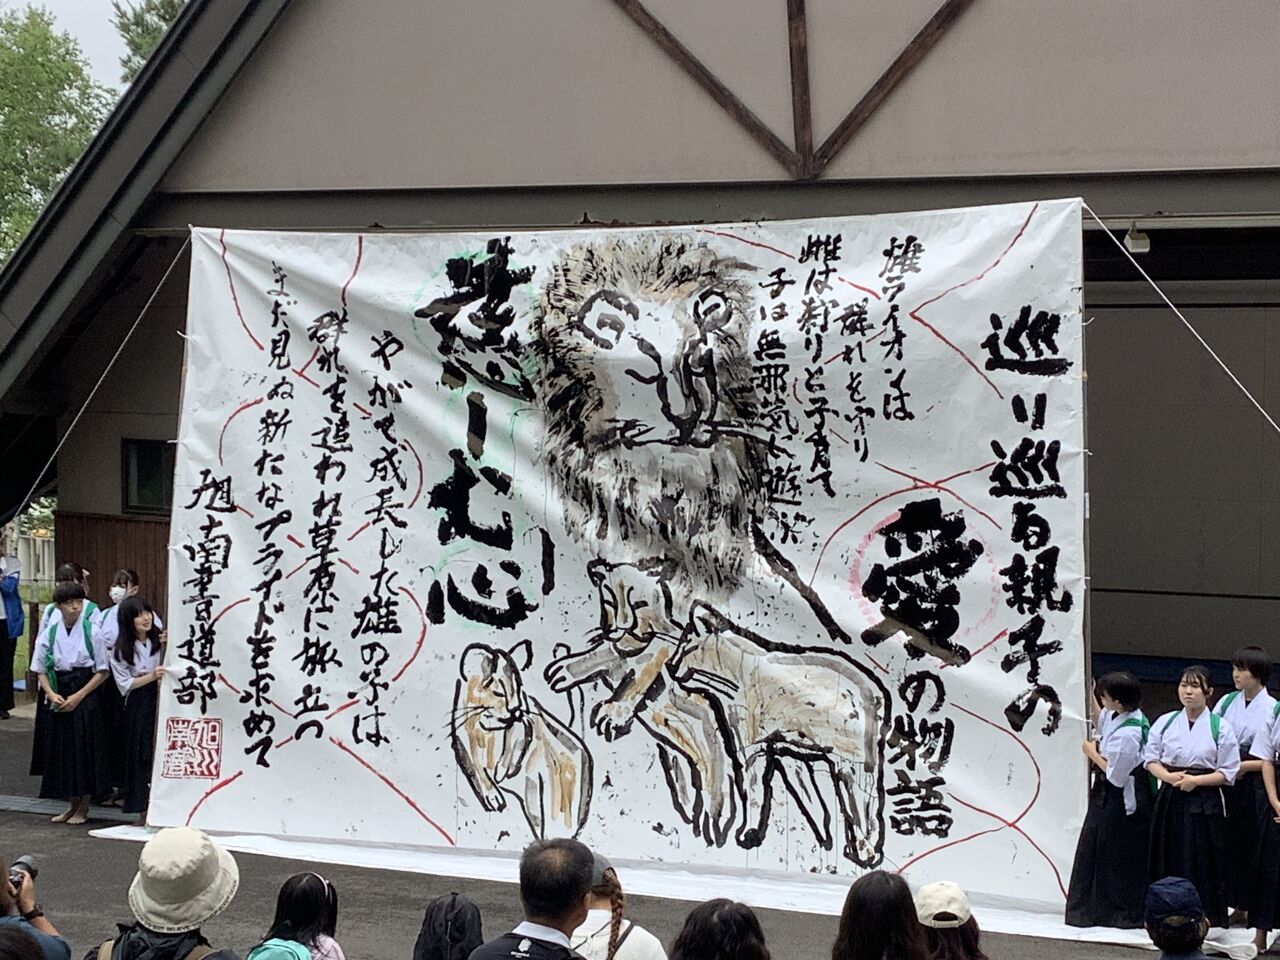 巡り巡る親子の
愛の物語
雄ライオンは
群れを守り
雌は狩りと子育て
子は無邪気に遊ぶ
慈しむ心
やがて成長した雄の子は
群れを追われ草原に旅立つ
まだ見ぬ新たなプライドを求めて
旭南書道部